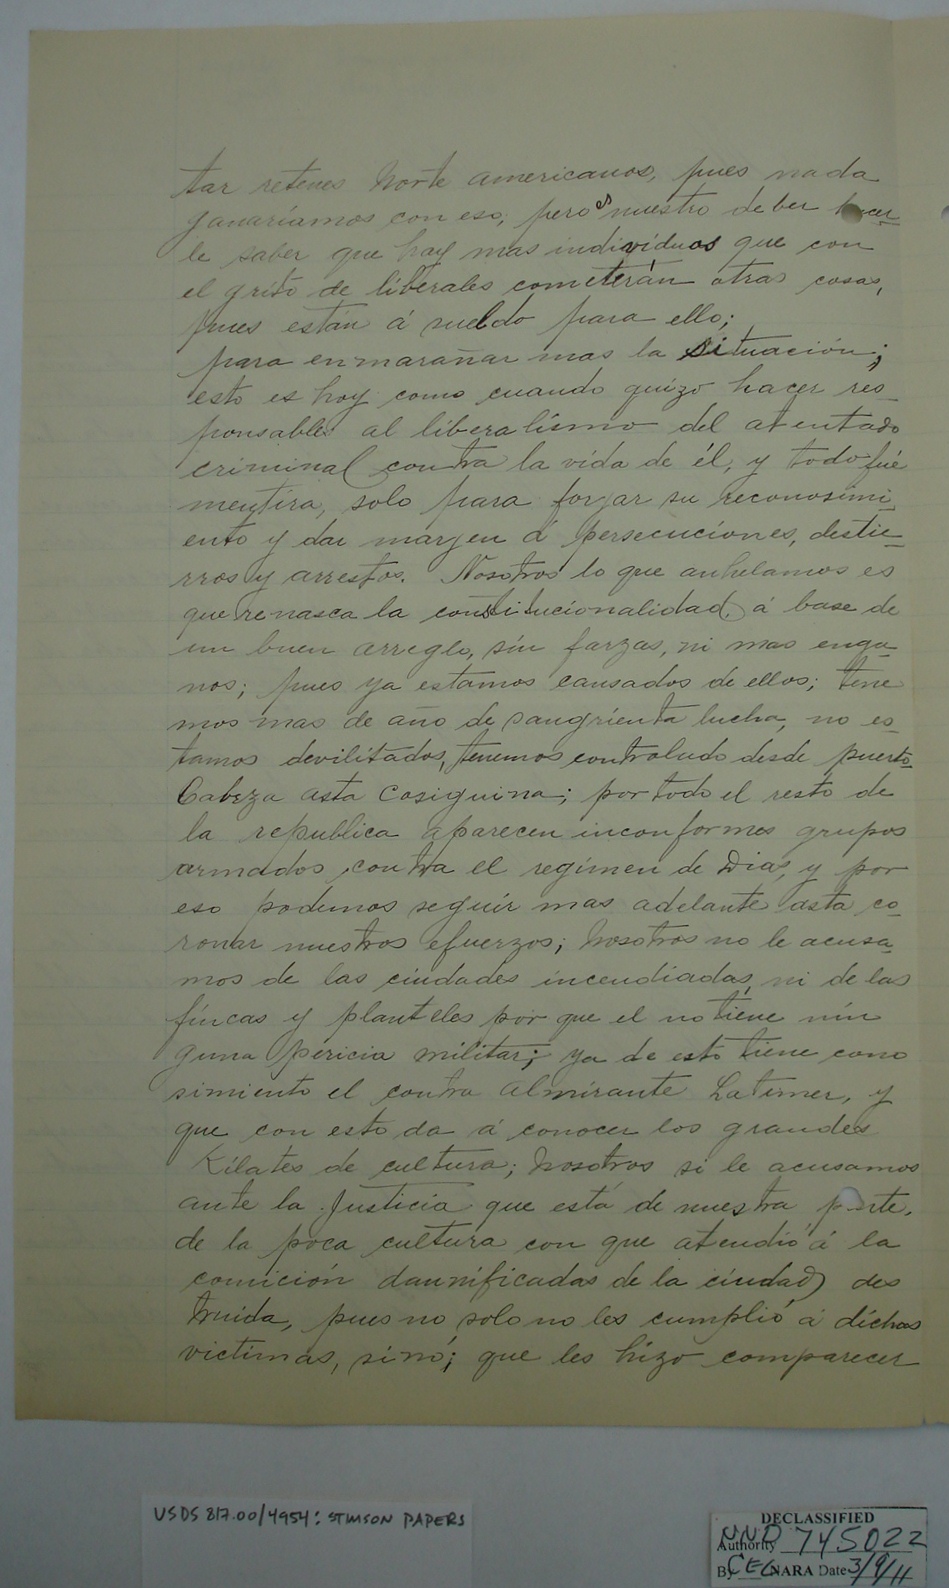 tar retenes Norte americanos, pues nada
ganaríamos con eso, pero es nuestro deber hacer-
le saber que hay mas individuos que con
el grito de liberales cometerán otras cosas,
pues están á sueldo para ello;
para enmarañar mas la situación;
esto es hoy como cuando quizo hacer res-
ponsable al liberalismo del atentado
criminal contra la vida de él, y todo fué
mentira, solo para forjar su reconosimi-
ento y dar margen á persecuciones, destie-
rros y arrestos. Nosotros lo que anhelamos es
que renasca la constitucionalidad, á base de
un buen arreglo, sin farzas, ni mas enga-
nos; pues ya estamos cansados de ellos; tene
mos mas de año de sangrienta lucha, no es-
tamos devilitados, tenemos controlado desde puerto
Cabeza asta Cosiguina; por todo el resto de
la republica aparecen inconformes grupos
armados contra el regimen de Dias, y por
eso podemos seguir mas adelante asta co-
ronar nuestros efuerzos; Nosotros no le acusa-
mos de las ciudades incendiadas, ni de las
fincas y planteles por que el no tiene nin
guna pericia militar; ya de esto tiene cono
simiento el contra Almirante Latimer, y
que con esto da á conocer los grandes
Kilates de cultura; Nosotros si le acusamos
ante la Justicia que está de nuestra parte,
de la poca cultura con que atendió á la
comición damnificadas de la ciudad des
truida, pues no solo no les cumplió á dichas
victimas, sinó; que les hizo comparecer
USDS 817.00/4954: STIMSON PAPERS
DECLASSIFIED
Authority NND 745022
By CEG NARA Date 3/9/11